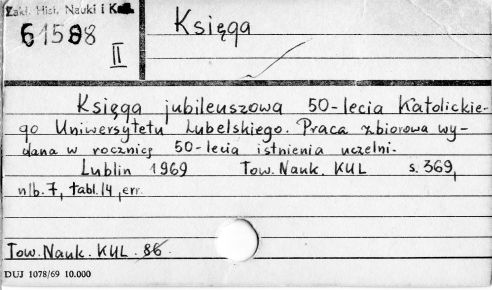 Zakł. Hist. Nauki i
61588
II
Księga
Księga jubileuszowa 50-lecia Katolickie-
go Uniwersytetu Lubelskiego. Praca zbiorowa wy-
dana w rocznicę 50-lecia istnienia uczelni.
Lublin 1969 Tow. Nauk. KUL s. 369,
nlb. 7, tabl. 14, err.
Tow. Nauk. KUL . 86.
DUJ 1078/69 10.000